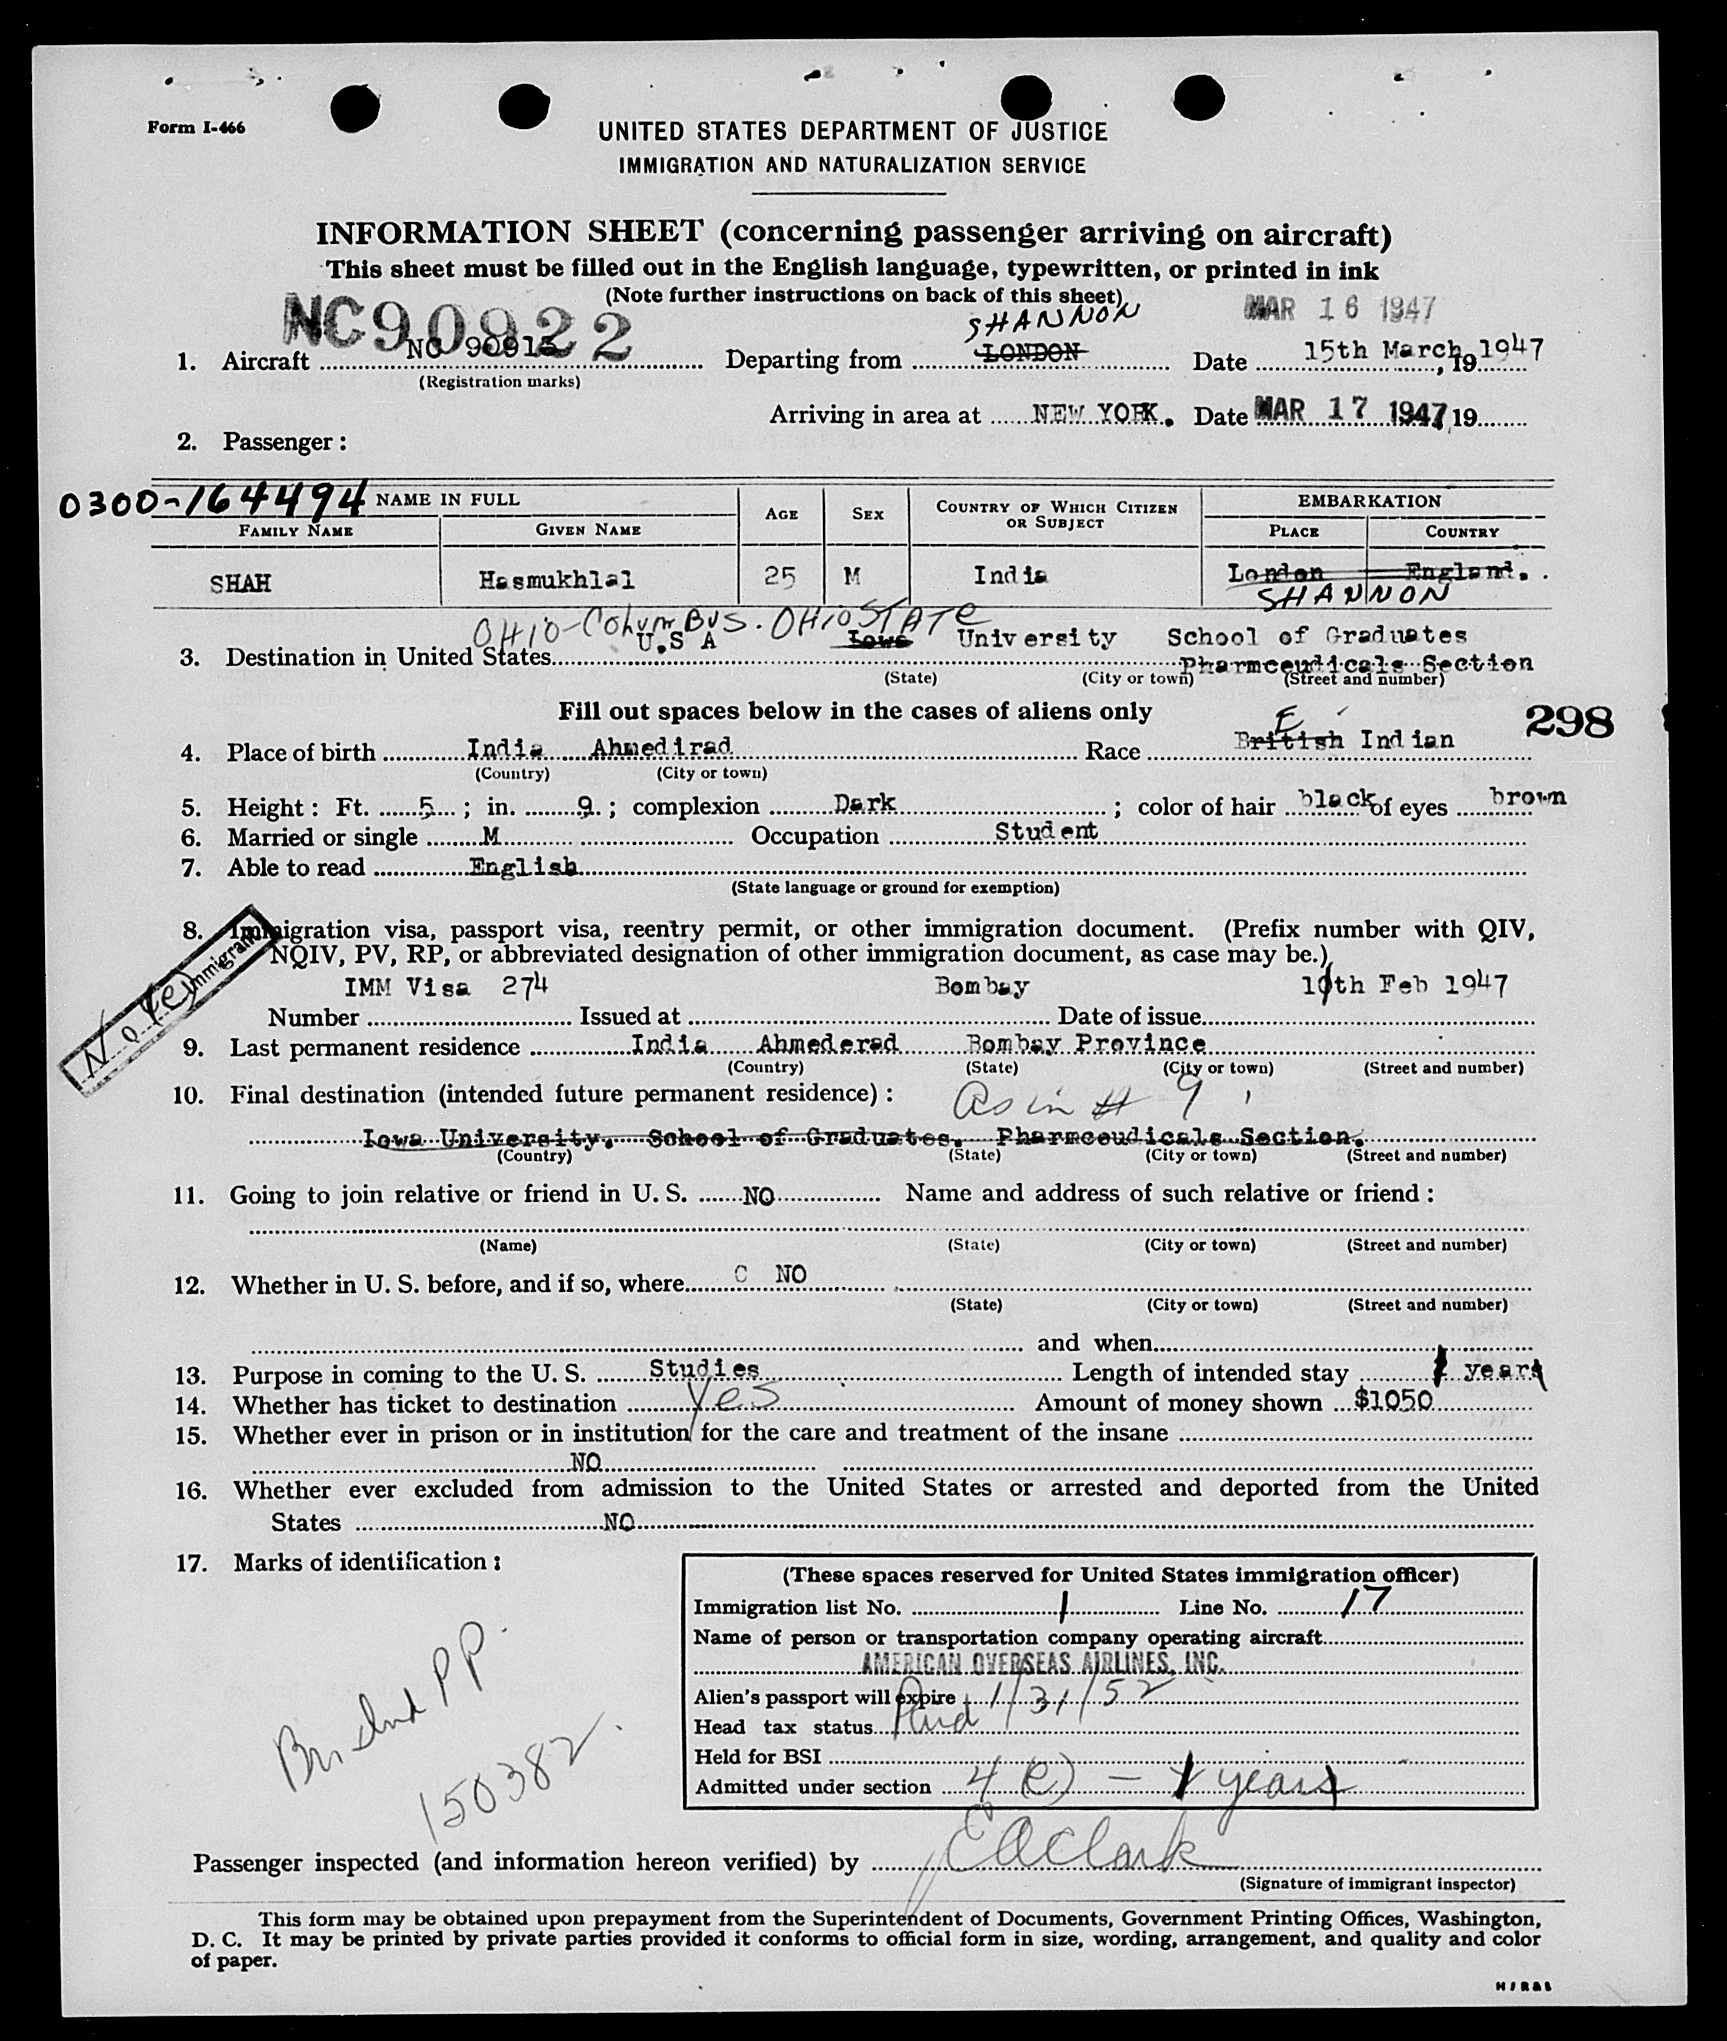 Form I-466
UNITED STATES DEPARTMENT OF JUSTICE
IMMIGRATION AND NATURALIZATION SERVICE
INFORMATION SHEET (concerning passenger arriving on aircraft)
This sheet must be filled out in the English language, typewritten, or printed in ink
(Note further instructions on back of this sheet)
NC90922 SHANNON MAR 16 1947
1. Aircraft NC 90913 Departing from LONDON Date 15th March, 19 1947
(Registration marks)
Arriving in area at NEW YORK. Date MAR 17 1947 19
2. Passenger:
0300-164494 NAME IN FULL AGE SEX COUNTRY OF WHICH CITIZEN OR SUBJECT EMBARKATION
FAMILY NAME GIVEN NAME PLACE COUNTRY
SHAH Hasmukhlal 25 M India London England.
SHANNON
OHIO-COLUMBUS. OHIO STATE
U.S A Iowa University School of Graduates
3. Destination in United States Pharmceudicals Section
(State) (City or town) (Street and number)
Fill out spaces below in the cases of aliens only
298
E
4. Place of birth India Ahmedirad Race British Indian
(Country) (City or town)
5. Height: Ft. 5; in. 9.; complexion Dark; color of hair black of eyes brown
6. Married or single M Occupation Student
7. Able to read English
(State language or ground for exemption)
8. Immigration visa, passport visa, reentry permit, or other immigration document. (Prefix number with QIV,
NQIV, PV, RP, or abbreviated designation of other immigration document, as case may be.)
No 4(e) Immigrant
IMM Visa 274 Bombay 10th Feb 1947
Number Issued at Date of issue
9. Last permanent residence India Ahmederad Bombay Province
(Country) (State) (City or town) (Street and number)
10. Final destination (intended future permanent residence): As in # 9
Iowa University. School of Graduates. Pharmceudicals Section.
(Country) (State) (City or town) (Street and number)
11. Going to join relative or friend in U. S. NO Name and address of such relative or friend:
(Name) (State) (City or town) (Street and number)
12. Whether in U. S. before, and if so, where C NO
(State) (City or town) (Street and number)
and when
13. Purpose in coming to the U. S. Studies Length of intended stay 1 year
14. Whether has ticket to destination Yes Amount of money shown $1050
15. Whether ever in prison or in institution for the care and treatment of the insane
NO
16. Whether ever excluded from admission to the United States or arrested and deported from the United
States NO
17. Marks of identification:
(These spaces reserved for United States immigration officer)
Immigration list No. 1 Line No. 17
Name of person or transportation company operating aircraft
AMERICAN OVERSEAS AIRLINES, INC.
Alien's passport will expire 1/31/52
Head tax status Paid
Held for BSI
Admitted under section 4 (e) — 1 year
PP.
150382
Passenger inspected (and information hereon verified) by E A Clark
(Signature of immigrant inspector)
This form may be obtained upon prepayment from the Superintendent of Documents, Government Printing Offices, Washington,
D. C. It may be printed by private parties provided it conforms to official form in size, wording, arrangement, and quality and color
of paper.